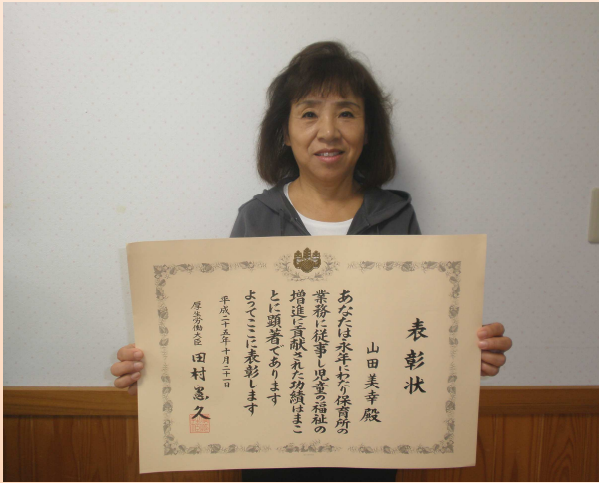 表彰状
山田美幸殿
あなたは永年にわたり保育所の
業務に従事し児童の福祉の
増進に貢献された功績はまこ
とに顕著であります
よってここに表彰します
平成二十五年十月二十一日
厚生労働大臣 田村憲久